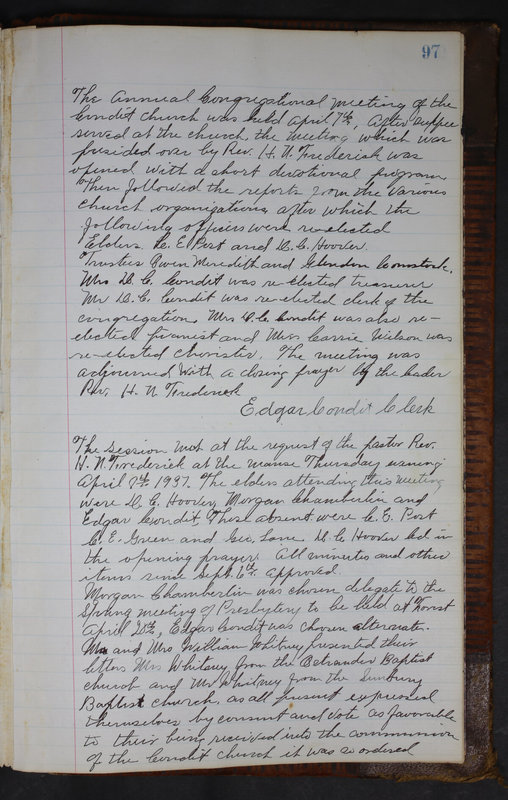 97
The Annual Congregational meeting of the
Condit church was held April 7th, After suppee
served at the church, the meeting which was
presided over by Rev. H. N. Frederick was
opened with a short devotional program
Then followed the reports from the various
church organizations after which the
following officers were re-elected
Elders. C. E. Post and D. C. Hoover.
Trustees Owen Meredith and Glendon Comstock.
Mrs D. C. Condit was re-elected treasurer
Mr D. C. Condit was re-elected clerk of the
congregation, Mrs D. C. Condit was also re-
elected pianist and Miss Carrie Wilson was
re-elected chorister. The meeting was
adjourned with a closing prayer by the leader
Rev. H. N Frederick
Edgar Condit Clerk
The session met at the request of the pastor Rev.
H. N. Frederick at the manse Thursday evening
April 7th 1937. The elders attending this meeting
were D. C. Hoover, Morgan Chamberlin and
Edgar Condit Those absent were C. E. Post
C. E. Green and Geo. Lane. D. C. Hoover led in
the opening prayer. All minutes and other
items since Sept. 6th. approved.
Morgan Chamberlin was chosen delegate to the
Spring meeting of Presbytery to be held at
April 20th, Edgar Condit was chosen alternate.
Mr and Mrs William Whitney presented their
letters Mrs Whitney from the Baptist
church and Mr Whitney from the Sunbury
Baptist church, as all present expressed
themselves by consent and vote as favorable
to their being received into the communion
of the Condit church it was so ordered